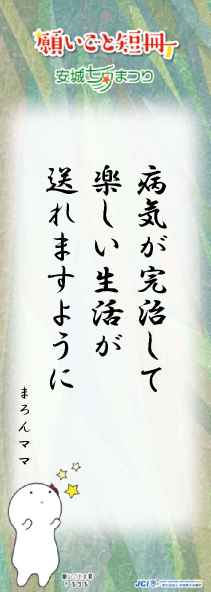 願いごと短冊
安城七夕まつり
病気が完治して
楽しい生活が
送れますように
まろんママ
JCI